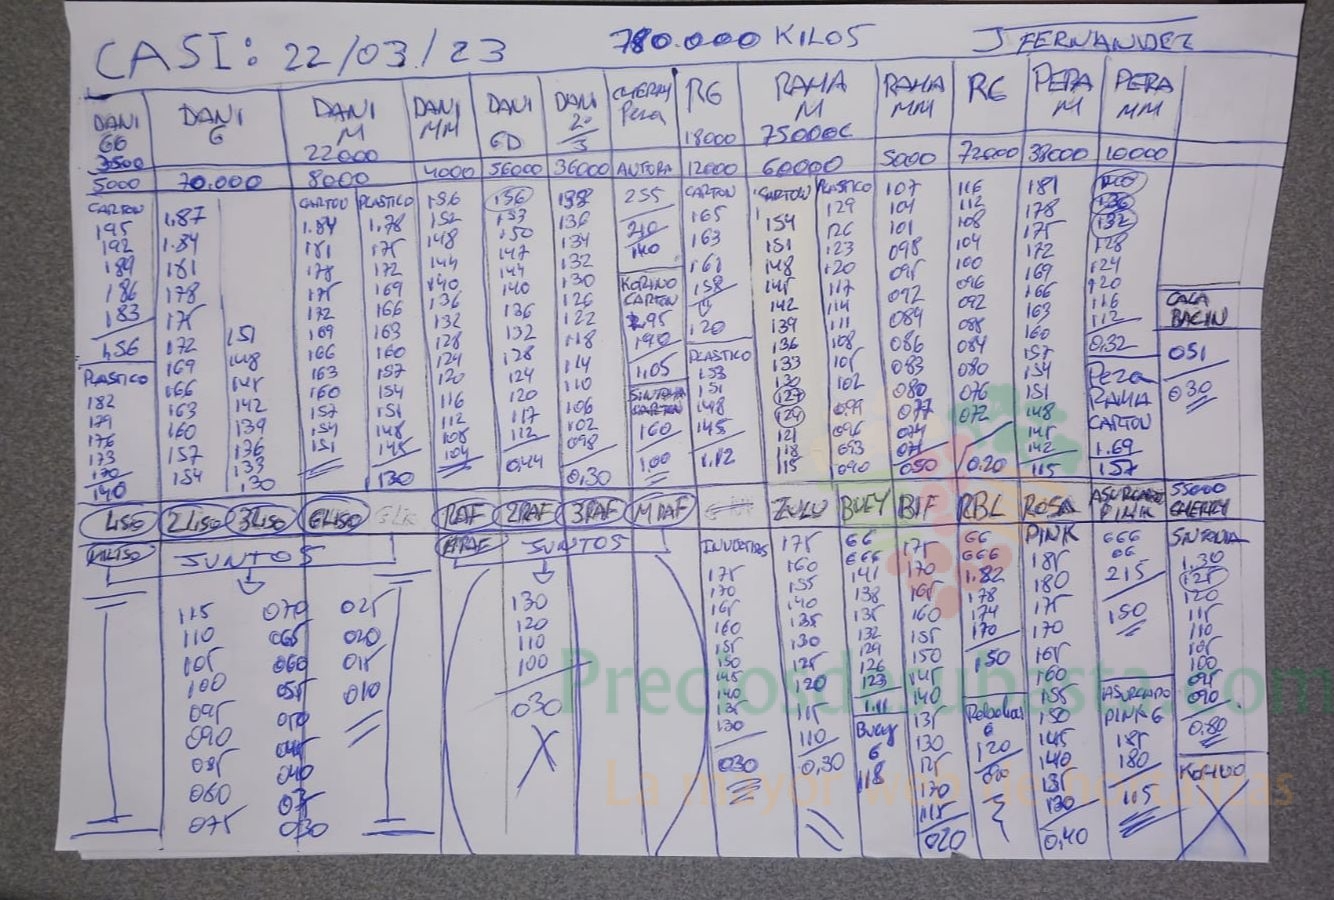 CASI: 22/03/23 780.000 KILOS J FERNANDEZ
DANI GG 3500 5000
DANI G 70.000
DANI M 22000 8000
DANI MM 4000
DANI GD 56000
DANI 2º/3 36000
CHERRY Pera AUTORA
RG 18000 12000
RAMA M 75000C 60000
RAMA MM 5000
RG 72000
PERA M 38000
PERA MM 10000
CARTON
195
192
189
186
183
1,56
PLASTICO
182
179
176
173
170
140
1,87
1.84
181
178
175
172
169
166
163
160
157
154
151
148
145
142
139
136
133
130
CARTON
1.84
181
178
175
172
169
166
163
160
157
154
151
PLASTICO
1,78
175
172
169
166
163
160
157
154
151
148
145
130
156
152
148
144
140
136
132
128
124
120
116
112
108
104
156
153
150
147
144
140
136
132
128
124
120
117
112
0,44
136
134
132
130
126
122
118
114
110
106
102
098
0,30
255
210
140
KORINO
CARTON
295
190
1,05
SINTONIA
CARTON
160
100
CARTON
165
163
161
158
120
PLASTICO
153
151
148
145
1.12
CARTON
154
151
148
145
142
139
136
133
130
127
124
121
118
115
PLASTICO
129
126
123
120
117
114
111
108
105
102
099
096
093
090
107
104
101
098
095
092
089
086
083
080
077
074
071
050
116
112
108
104
100
096
092
088
084
080
076
072
0.20
181
178
175
172
169
166
163
160
157
154
151
148
145
142
115
136
132
128
124
120
116
112
0,32
Pera
RAMA
CARTON
1.69
1.57
CALA
BACIN
051
030
4LISO 2LISO 3LISO GLISO 1RAF 2RAF 3RAF MRAF ZULU BUEY BIF RBL ROSA PINK ASURCADO PINK 55000 CHERRY
MLISO JUNTOS
115
110
105
100
095
090
085
080
075
070
065
060
055
050
045
040
035
030
025
020
015
010
JUNTOS
130
120
110
100
030
X
175
170
165
160
155
150
145
140
135
130
030
175
160
155
140
135
130
125
120
115
110
0,30
GG
GGG
141
138
135
132
129
126
123
1.11
Buey
G
118
175
170
165
160
155
150
145
140
135
130
125
120
115
020
GG
GGG
1.82
178
174
170
150
G
120
185
180
175
170
165
160
155
150
145
140
135
130
0,40
GGG
GG
215
150
ASURCADO
PINK G
185
180
115
SINTONIA
1.30
125
120
115
110
105
100
095
090
0.80
KORINO
X
Preciosdesubasta.com